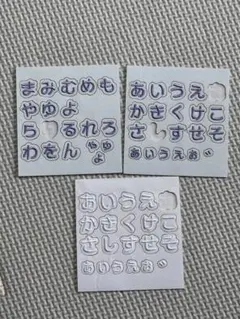 まみむめも
やゆよ
らるれろ
わをん
ゃゅ
ょ
あいうえ
かきくけこ
さすせそ
ぁぃぅぇぉ
あいうえ
かきくけこ
さしすせそ
ぁぃぅぇぉ